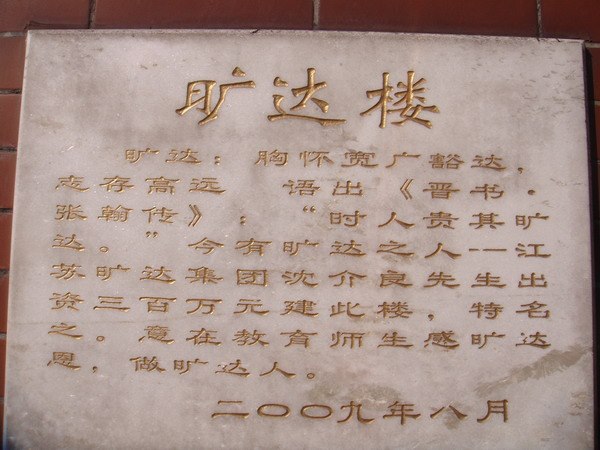 旷达楼
旷达：胸怀宽广豁达，
志存高远 语出《晋书·
张翰传》：“时人贵其旷
达。”今有旷达之人——江
苏旷达集团沈介良先生出
资三百万元建此楼，特名
之。意在教育师生感旷达
恩，做旷达人。
二〇〇九年八月